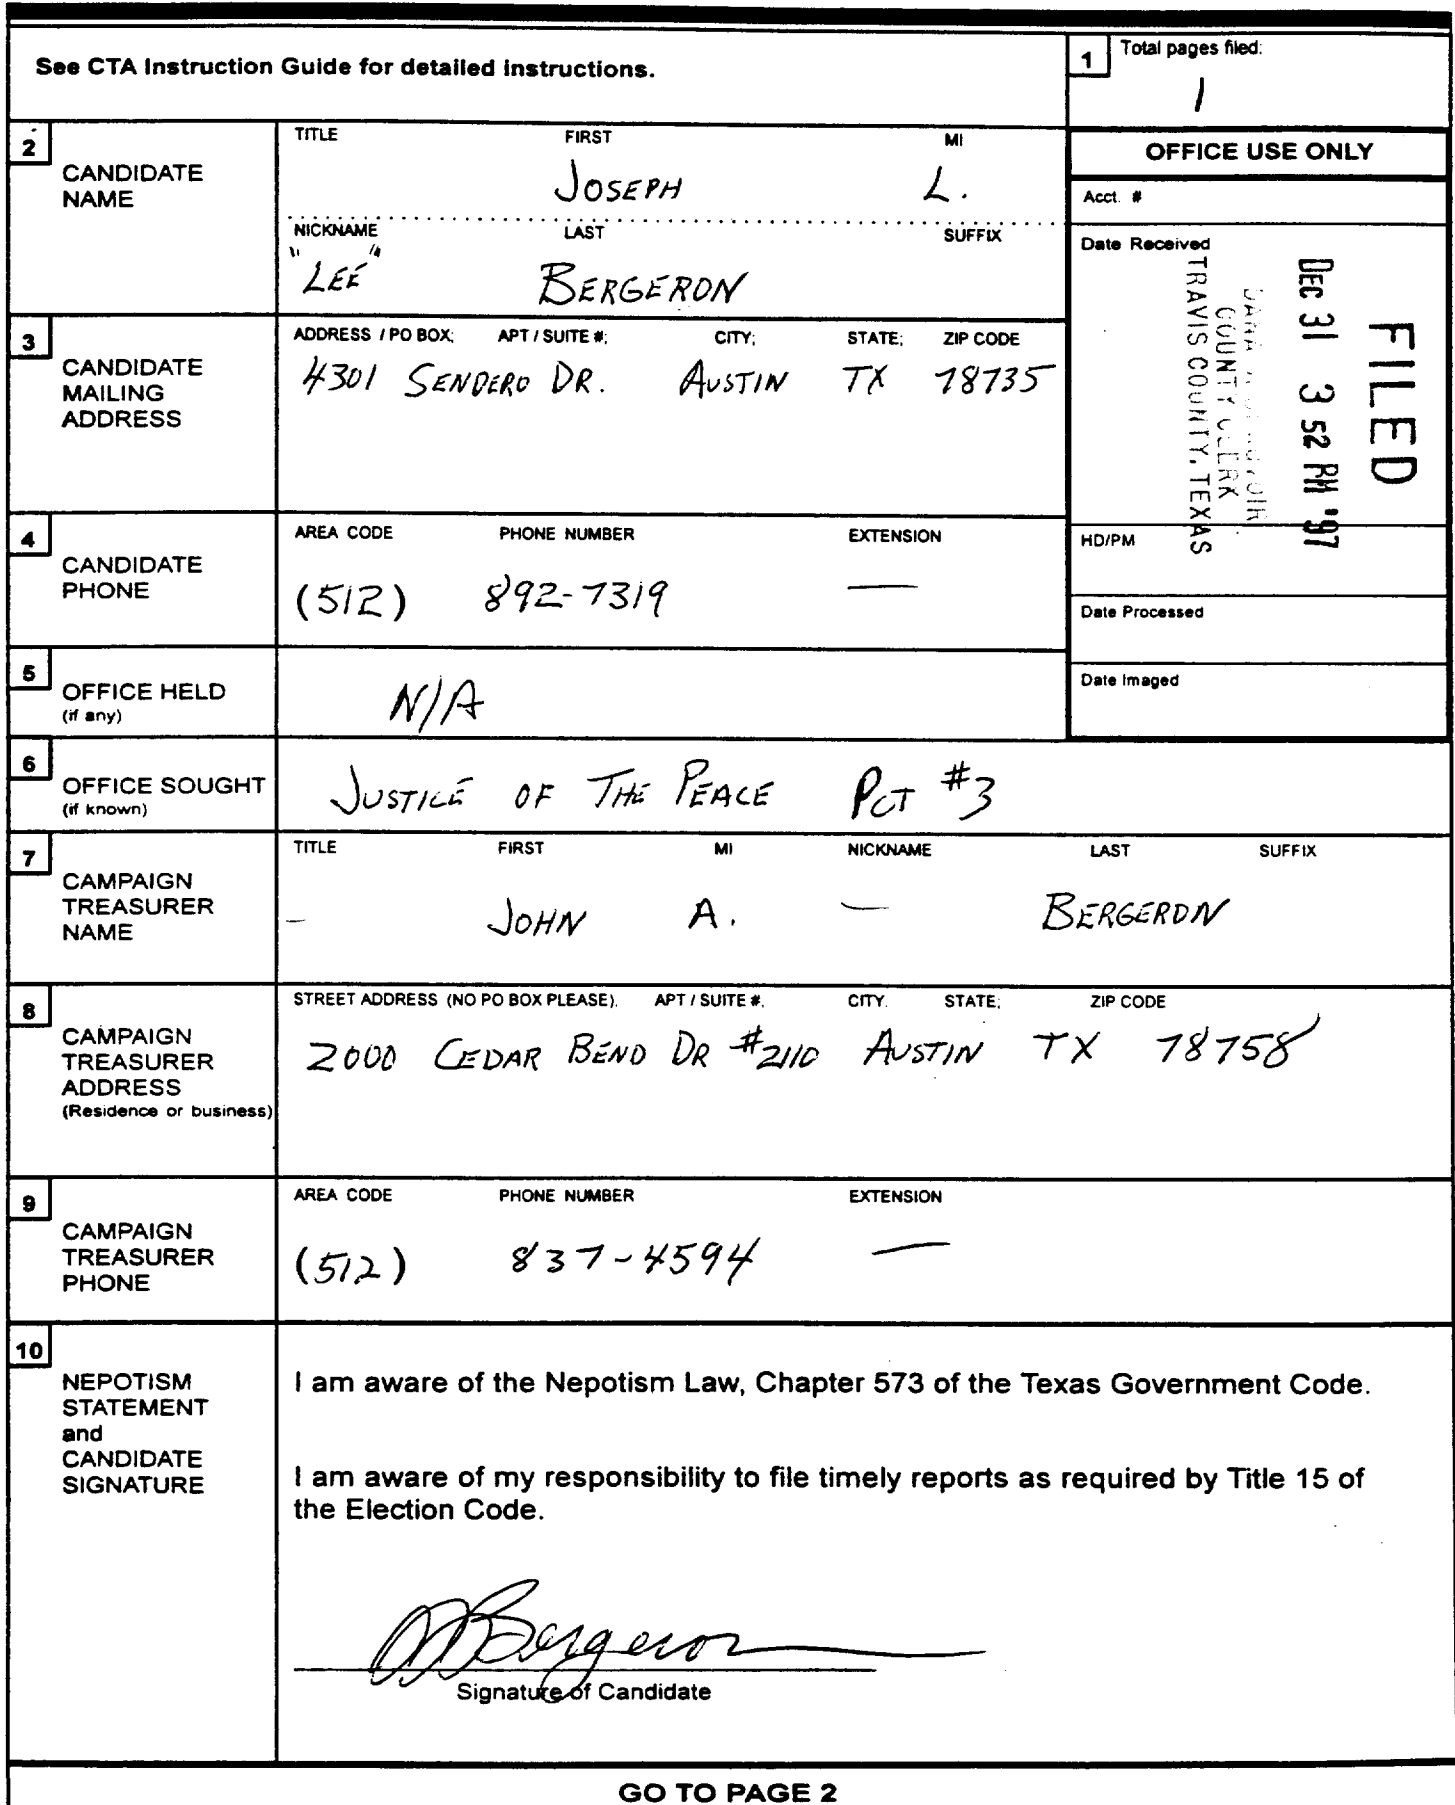 See CTA Instruction Guide for detailed instructions.
1 Total pages filed:
1
2 CANDIDATE NAME
TITLE FIRST MI
JOSEPH L.
NICKNAME LAST SUFFIX
"LEE" BERGERON
OFFICE USE ONLY
Acct. #
Date Received
FILED
DEC 31 3 52 PM '97
COUNTY CLERK
TRAVIS COUNTY, TEXAS
HD/PM
Date Processed
Date Imaged
3 CANDIDATE MAILING ADDRESS
ADDRESS / PO BOX; APT / SUITE #; CITY; STATE; ZIP CODE
4301 SENDERO DR. AUSTIN TX 78735
4 CANDIDATE PHONE
AREA CODE PHONE NUMBER EXTENSION
(512) 892-7319 —
5 OFFICE HELD
(if any)
N/A
6 OFFICE SOUGHT
(if known)
JUSTICE OF THE PEACE PCT #3
7 CAMPAIGN TREASURER NAME
TITLE FIRST MI NICKNAME LAST SUFFIX
– JOHN A. — BERGERON
8 CAMPAIGN TREASURER ADDRESS
(Residence or business)
STREET ADDRESS (NO PO BOX PLEASE); APT / SUITE #; CITY; STATE; ZIP CODE
2000 CEDAR BEND DR #2110 AUSTIN TX 78758
9 CAMPAIGN TREASURER PHONE
AREA CODE PHONE NUMBER EXTENSION
(512) 837-4594 —
10 NEPOTISM STATEMENT and CANDIDATE SIGNATURE
I am aware of the Nepotism Law, Chapter 573 of the Texas Government Code.
I am aware of my responsibility to file timely reports as required by Title 15 of
the Election Code.
Bergeron
Signature of Candidate
GO TO PAGE 2